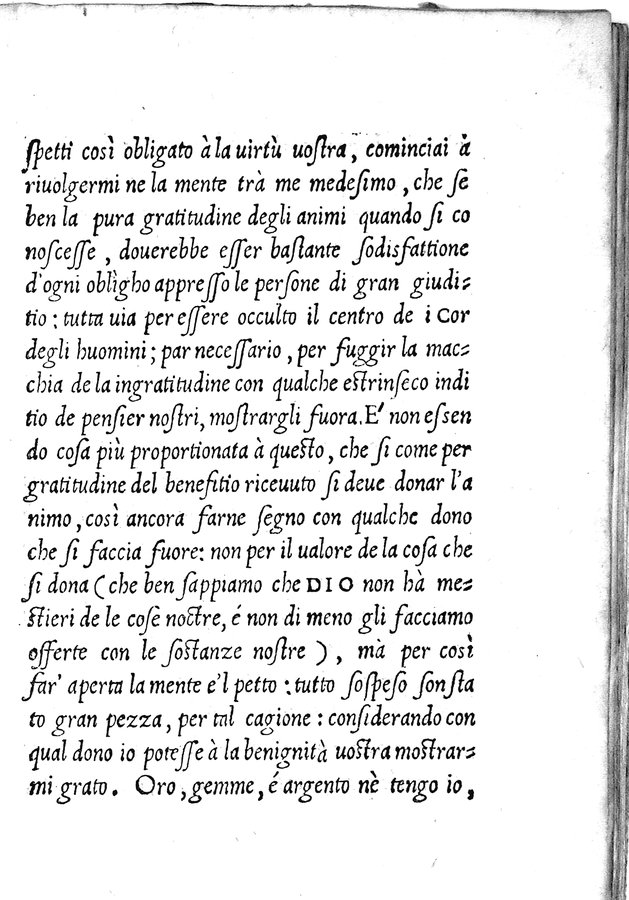 spetti così obligato à la uirtù uostra, cominciai à
riuolgermi ne la mente trà me medesimo, che se
ben la pura gratitudine degli animi quando si co
noscesse, douerebbe esser bastante sodisfattione
d'ogni oblìgho appresso le persone di gran giudi⸗
tio: tutta uia per essere occulto il centro de i Cor
degli huomini; par necessario, per fuggir la mac⸗
chia de la ingratitudine con qualche estrinseco indi
tio de pensier nostri, mostrargli fuora. E' non essen
do cosa più proportionata à questo, che si come per
gratitudine del benefitio riceuuto si deue donar l'a
nimo, così ancora farne segno con qualche dono
che si faccia fuore: non per il ualore de la cosa che
si dona (che ben sappiamo che DIO non hà me⸗
stieri de le cose noctre, é non di meno gli facciamo
offerte con le sostanze nostre), mà per così
far' aperta la mente e'l petto: tutto sospeso son sta
to gran pezza, per tal cagione: considerando con
qual dono io potesse à la benignità uostra mostrar⸗
mi grato. Oro, gemme, é argento nè tengo io,